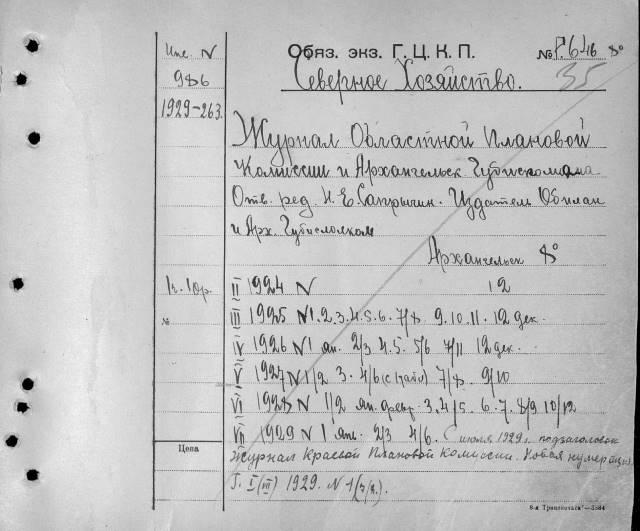 Инв. N
986
1929-263.
Обяз. экз. Г.Ц.К.П.
№ Р.646 8°
35
Северное Хозяйство.
Журнал Областной Плановой
Комиссии и Архангельск Губисполкома
Отв. ред. Н. Е. Сапрыгин. Издатель Обплан
и Арх. Губисполком
Архангельск 8°
II 1924 N 12
№
III 1925 N1.2.3.4.5.6.7/8 9.10.11.12 дек.
IV 1926 N1 ян. 2/3 4.5. 5/6 7/11 12 дек.
V 1927 N 1/2 3. 4/6 7/8. 9/10
VI 1928 N 1/2 ян. февр. 3.4/5. 6.7. 8/9 10/12
VII 1929 N 1 янв. 2/3 4/6. С июля 1929 г. подзаголовок
Цена
Журнал Краевой Плановой Комиссии. Новая нумерация.
Г. I (VII) 1929. N 1